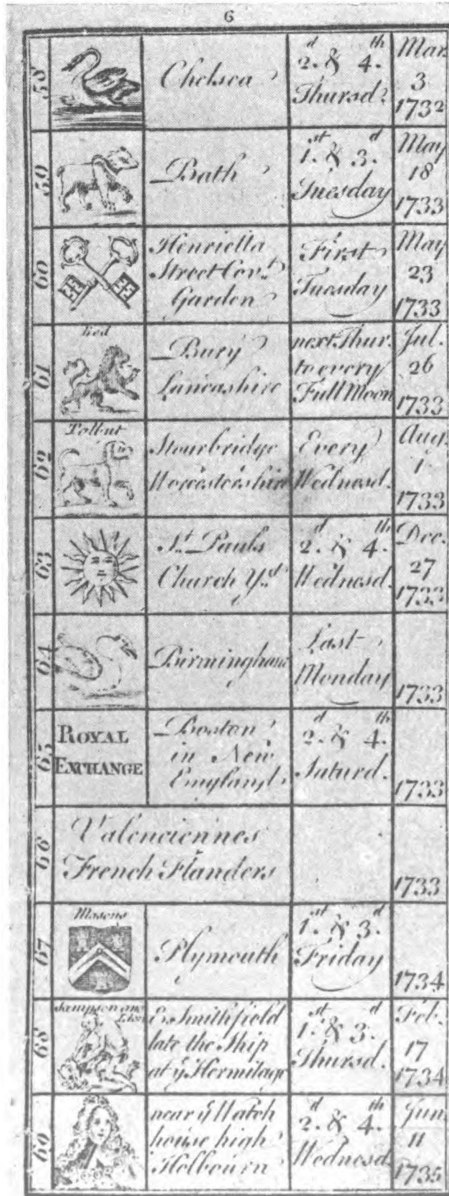 6
58
Chelsea
2.d & 4.th
Thursd.
Mar.
3
1732
59
Bath
1.st & 3.d
Tuesday
May
18
1733
60
Henrietta
Street Cov.t
Garden
First
Tuesday
May
23
1733
61
Red
Bury
Lancashire
next Thur.
to every
Full Moon
Jul.
26
1733
62
Talbut
Stourbridge
Worcestershire
Every
Wednesd.
Aug.
1
1733
63
S.t Pauls
Church Y.d
2.d & 4.th
Wednesd.
Dec.
27
1733
64
Birmingham
Last
Monday
1733
65
ROYAL
EXCHANGE
Boston
in New
England
2.d & 4.th
Saturd.
1733
66
Valenciennes
French Flanders
1733
67
Masons
Plymouth
1.st & 3.d
Friday
1734
68
Sampson and
Lion
E. Smithfield
late the Ship
at y.e Hermitage
1.st & 3.d
Thursd.
Feb.
17
1734
69
near y.e Watch
house high
Holbourn
2.d & 4.th
Wednesd.
Jun.
11
1735